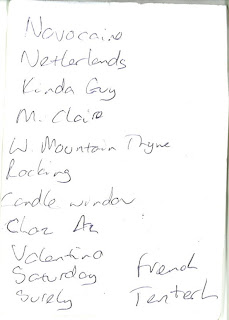 Novocaine
Netherlands
Kinda Guy
M. Claire
W. Mountain Thyme
Rocking
Candle window
Chaz
Valentino
Saturday French
Surely